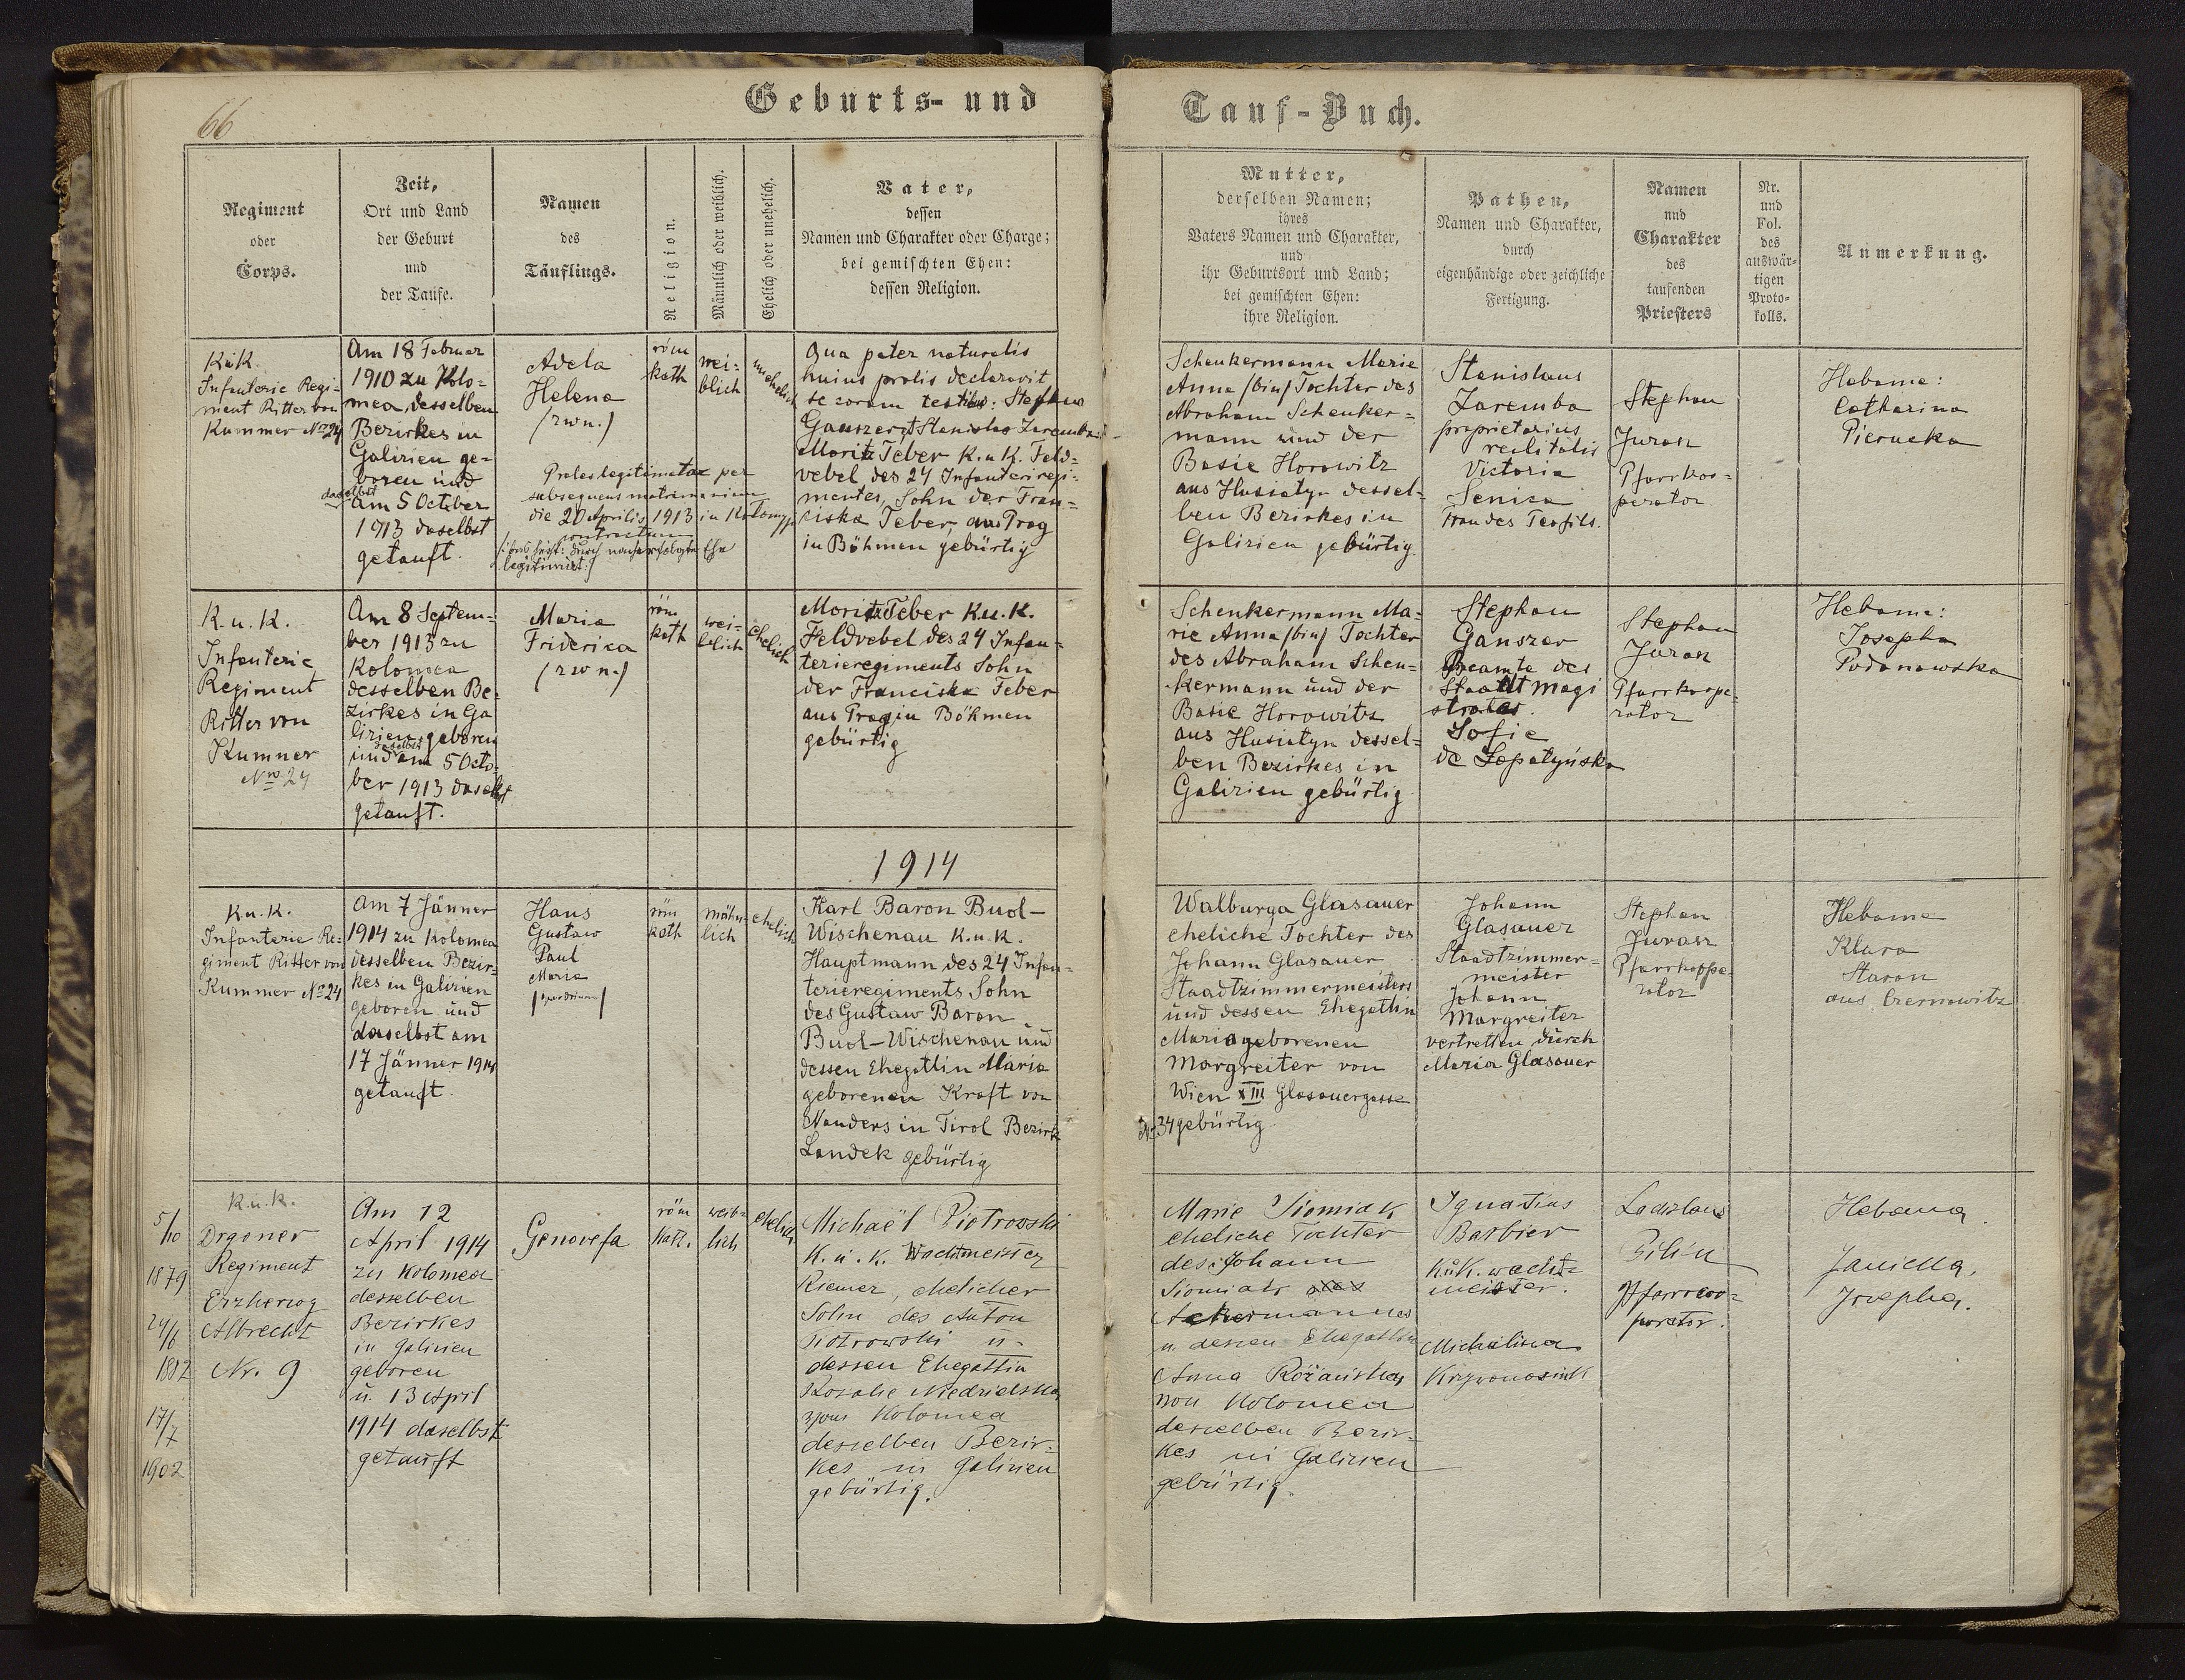 66
Geburts- und
Tauf-Buch.
Regiment
oder
Corps.
Zeit,
Ort und Land
der Geburt
und
der Taufe.
Namen
des
Täuflings.
Religion.
Männlich oder weiblich.
Ehelich oder unehelich.
Vater,
dessen
Namen und Charakter oder Charge;
bei gemischten Ehen:
dessen Religion.
Mutter,
derselben Namen;
ihres
Vaters Namen und Charakter,
und
ihr Geburtsort und Land;
bei gemischten Ehen:
ihre Religion.
Pathen,
Namen und Charakter,
durch
eigenhändige oder zeichliche
Fertigung.
Namen
und
Charakter
des
taufenden
Priesters
Nr.
und
Fol.
des
auswär-
tigen
Proto-
kolls.
Anmerkung.
K.u.K.
Infanterie Regi-
ment Ritter von
Kummer No 24
Am 18 Februar
1910 zu Kolo-
mea, desselben
Bezirkes in
Galizien ge-
boren und
daselbst
am 5 October
1913 daselbst
getauft.
Adela
Helena
(zwn.)
Proles legitimatae per
subsequens matrimonium
die 20 Aprilis 1913 in Kolomyja
contractum
legitimirt.)
röm
kath
wei-
blich
unehelich
Qua pater naturalis
huius prolis declaravit
se coram testibus: Stephano
Ganszer et Stanislao Zaremba
Moritz Teber K.u.K. Feld-
webel des 24 Infanterieregi-
mentes, Sohn der Fran-
ciska Teber, aus Prag
in Böhmen gebürtig
Schenkermann Marie
Anna (bin) Tochter des
Abraham Schenker-
mann und der
Basie Horowitz
aus Husiatyn dessel-
ben Bezirkes in
Galizien gebürtig.
Stanislaus
Zaremba
proprietarius
realitatis
Victoria
Senica
Frau des Teofils.
Stephan
Jurasz
Pfarrkoo-
perator
Hebame:
Catharina
Piernecka
K.u.K.
Infanterie
Regiment
Ritter von
Kummer
Nro 24
Am 8 Septem-
ber 1913 zu
Kolomea
desselben Be-
zirkes in Ga
lizien geboren
daselbst
und am 5 Octo-
ber 1913 daselbst
getauft.
Maria
Friderica
(zwn.)
röm
kath
wei-
blich
ehelich
Moritz Teber K.u.K.
Feldvebel des 24 Infan-
terieregiments Sohn
der Franciska Teber
aus Prag in Böhmen
gebürtig
Schenkermann Ma-
rie Anna (bin) Tochter
des Abraham Schen-
kermann und der
Basie Horowitz
aus Husiatyn dessel-
ben Bezirkes in
Galizien gebürtig
Stephan
Ganszer
Beamte des
Staadt magi
strates.
Sofie
de Lopatyńska
Stephan
Jurasz
Pfarrkoope-
rator
Hebame:
Josepha
Podanowska
1914
K.u.K.
Infanterie Re-
giment Ritter von
Kummer No 24
Am 7 Jänner
1914 zu Kolomea
desselben Bezir-
kes in Galizien
geboren und
daselbst am
17 Jänner 1914
getauft.
Hans
Gustaw
Paul
Maria
röm
kath
mähn-
lich
ehelich
Karl Baron Buol-
Wischenau K.u.K.
Hauptmann des 24 Infan-
terieregiments Sohn
des Gustaw Baron
Buol-Wischenau und
dessen Ehegattin Maria
geborenen Kraft von
Nauders in Tirol Bezirk
Landek gebürtig
Walburga Glasauer
eheliche Tochter des
Johann Glasauer
Staadtzimmermeisters
und dessen Ehegattin
Maria geborenen
Margreiter von
Wien XIII Glasauergasse
No 34 gebürtig
Johann
Glasauer
Staadtzimmer-
meister
Johann
Margreiter
vertretten durch
Maria Glasauer
Stephan
Jurasz
Pfarrkoppe
rator
Hebame
Klara
Staron
aus Czernowitz
5/10
1879
24/6
1882
17/7
1902
K.u.K.
Drgoner
Regiment
Erzherzog
Albrecht
Nr. 9
Am 12
April 1914
zu Kolomea
desselben
Bezirkes
in Galizien
geboren
u. 13 April
1914 daselbst
getauft
Genovefa
röm
kath.
weib-
lich
ehelich
Michaël Piotrowski
K.u.K. Wachtmeister
Riemer, ehelicher
Sohn des Anton
Piotrowski u.
dessen Ehegattin
Rosalie Niedzielska
Kolomea
desselben Bezir-
kes in Galizien
gebürtig.
Marie Siomiak
eheliche Tochter
des Johann
Siomiak
Ackermannes
u. dessen Ehegattin
Anna Różańska
von Kolomea
desselben Bezir-
kes in Galizien
gebürtig.
Ignatius
Barbier
K.u.K. wacht-
meister.
Michalina
Krzywonosiuk
Ladislaus
Pfarrcoo-
perator.
Hebama
Janicka,
Josepha.